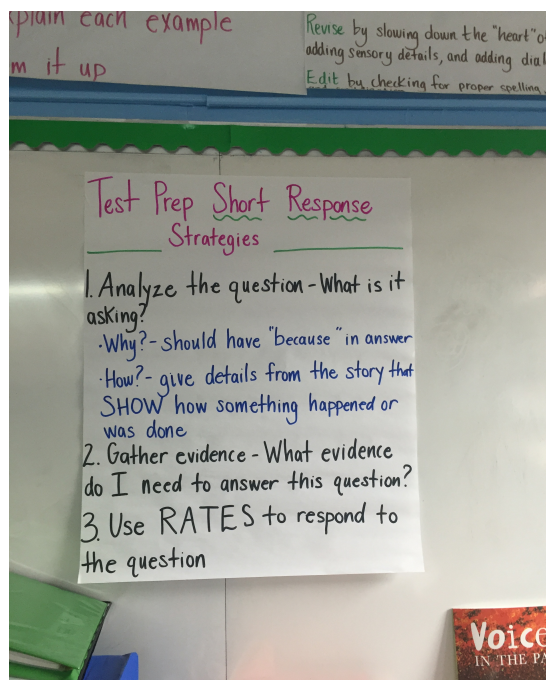 plain each example
m it up
Revise by slowing down the "heart" o
adding sensory details, and adding dial
Edit by checking for proper spelling,
Test Prep Short Response
Strategies
1. Analyze the question - What is it
asking?
·Why? - should have "because" in answer
·How? - give details from the story that
SHOW how something happened or
was done
2. Gather evidence - What evidence
do I need to answer this question?
3. Use RATES to respond to
the question
Voice
IN THE PA